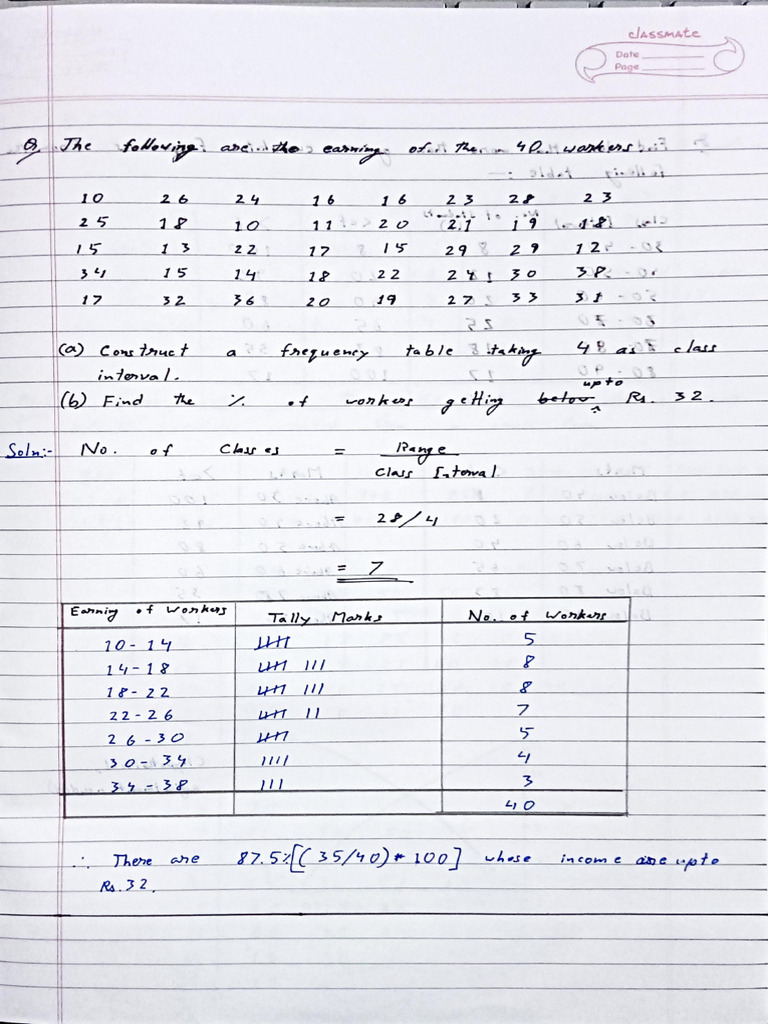 classmate
Date
Page
Q. The following are the earning of the 40 workers.
10 26 24 16 16 23 28 23
25 18 10 11 20 21 19 18
15 13 22 17 15 29 29 12
34 15 14 18 22 24 30 38
17 32 36 20 19 27 33 31
(a) Construct a frequency table taking 4 as class
interval.
upto
(b) Find the % of workers getting below Rs. 32.
Soln:- No. of Classes = Range
Class Interval
= 28/4
= 7
Earning of workers Tally Marks No. of workers
10-14 5
14-18 8
18-22 8
22-26 7
26-30 5
30-34 4
34-38 3
40
∴ There are 87.5% [(35/40)*100] whose income are upto
Rs.32.